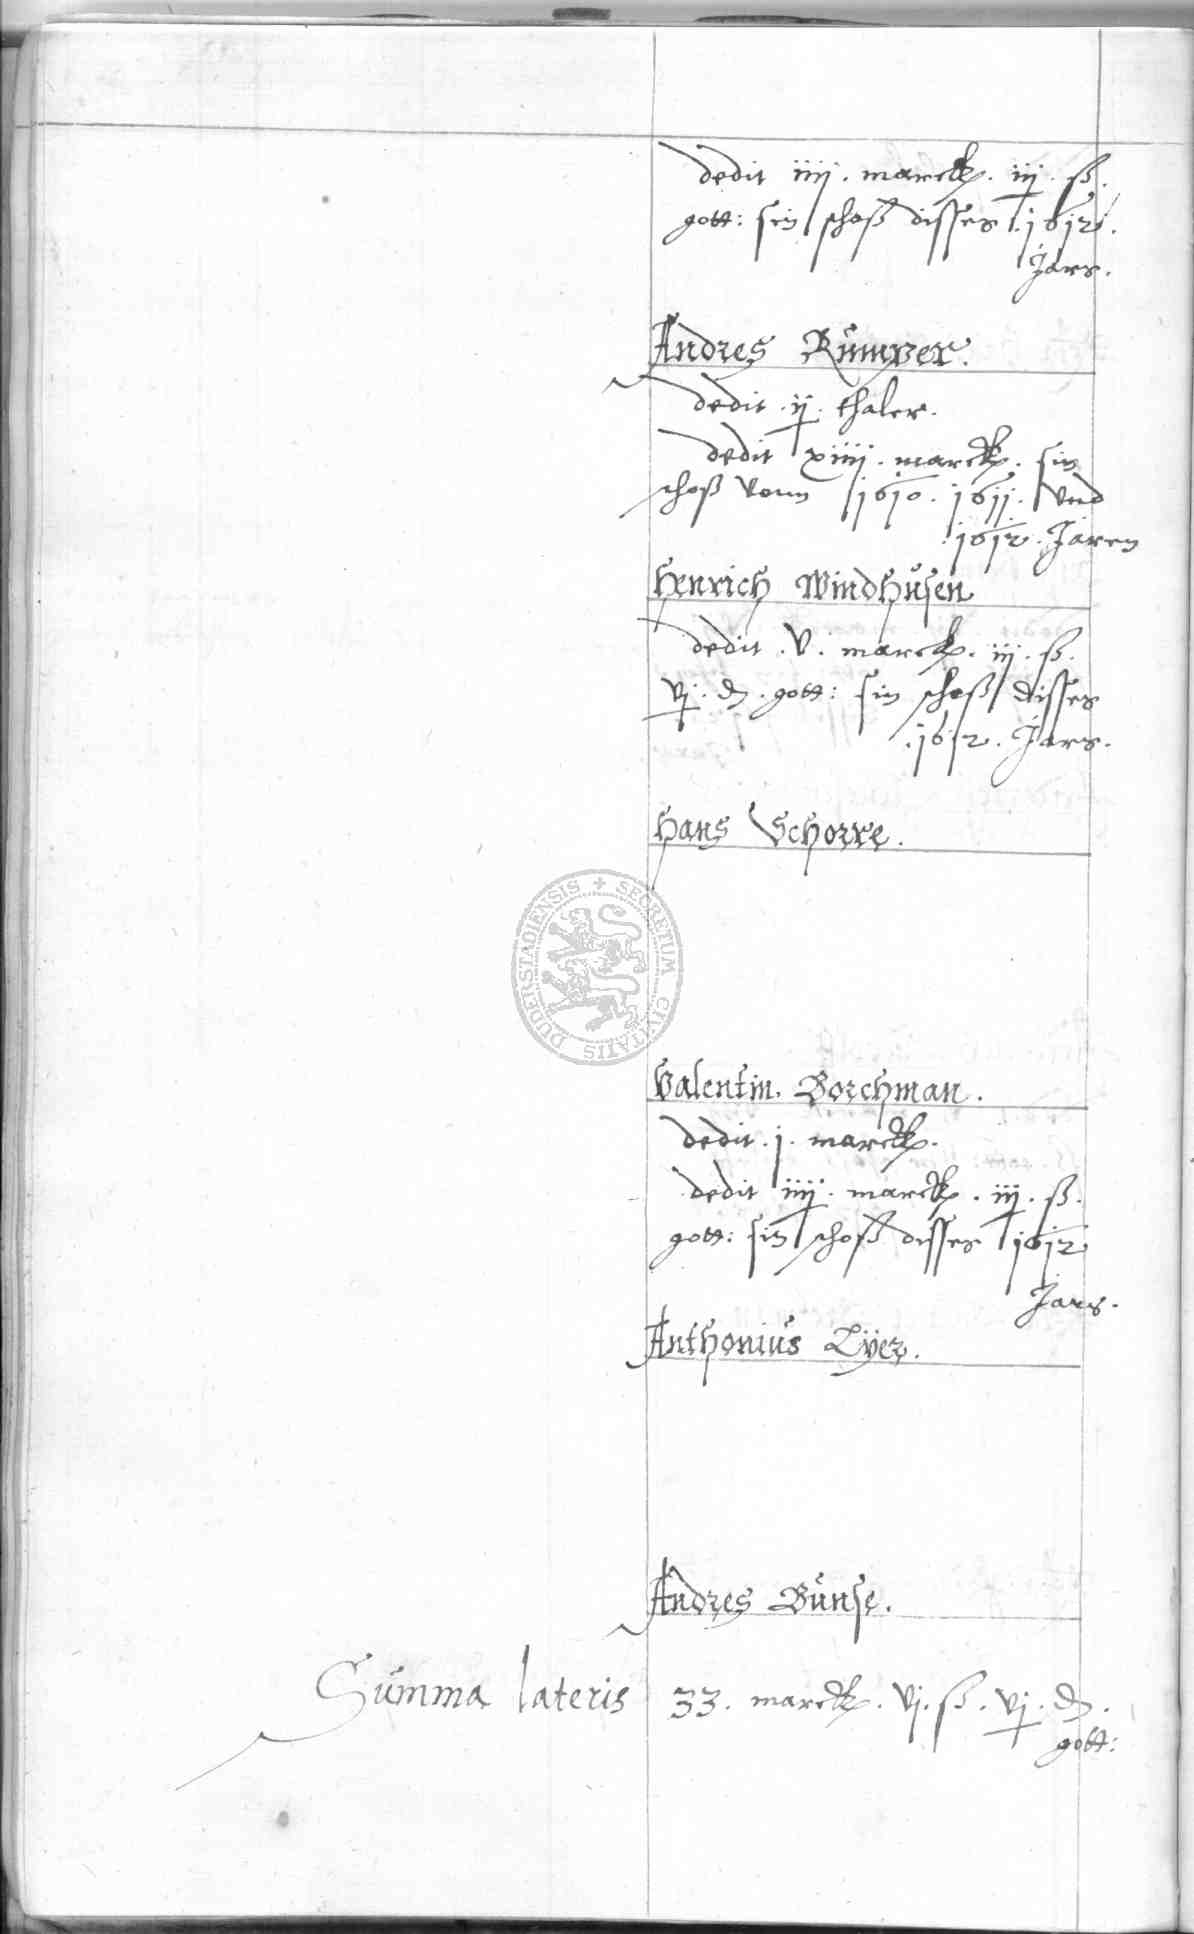 dedit iiij. marck. iij. ß.
gott: sin schoß disses 1612.
Jars.
Andres Rümper.
dedit ij. thaler.
dedit xiiij. marck. sin
schoß vonn 1610. 1611. Vnd
1612. Jaren
Henrich Windhüsen
dedit .V. marck. iij. ß.
vj. d. gott: sin schoß disses
.1612. Jars.
Hans Schorre.
DUDERSTADIENSIS + SECRETUM CIVITATIS
Valentin. Borchman.
dedit .j. marck.
dedit iiij. marck. iij. ß.
gott: sin schoß disses 1612
Jars.
Anthonius Lÿer.
Andres Bünse.
Summa lateris 33. marck. vj. ß. vj. d.
gott: